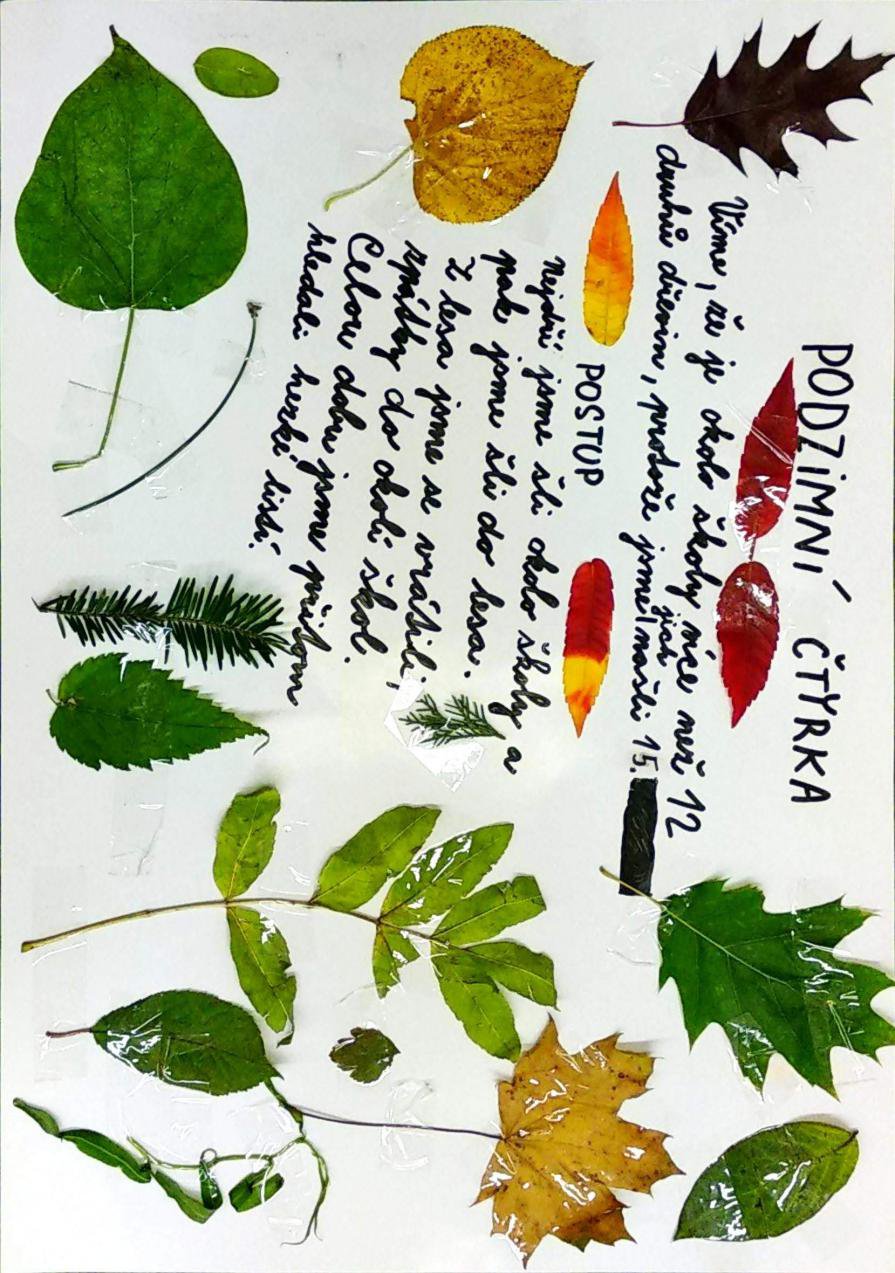 PODZIMNÍ ČTYŘKA
Víme, že je okolo školy více než 12
druhů dřevin, protože jsme jich našli 15.
POSTUP
Nejdří jsme šli okolo školy a
pak jsme šli do lesa.
Z lesa jsme se vrátili,
zpátky do okolí škol.
Celou dobu jsme přitom
hledali hezké listí.